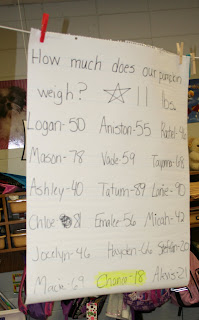 How much does our pumpkin
weigh? ☆ 11 lbs.
Logan-50 Aniston-55 Rachel-96
Mason-78 Vade-59 Tayuna-68
Ashley-40 Tatum-89 Lane-90
Chloe 81 Emalee-56 Micah-42
Jocelyn-46 Hayden-66 -20
Macie-69 Chance-18 Alexis-21